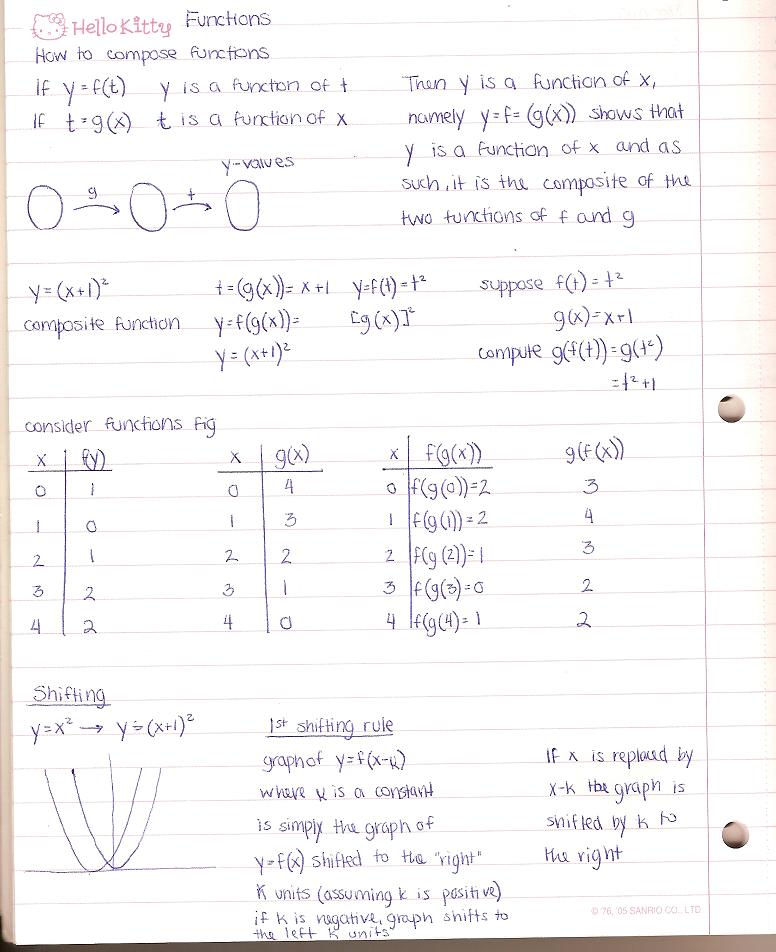 Hello Kitty Functions
How to compose functions
If y = f(t) y is a function of t
If t = g(x) t is a function of x
Then y is a function of x,
namely y = f = (g(x)) shows that
y is a function of x and as
such, it is the composite of the
two functions of f and g
y-values
g f
y = (x+1)²
composite function
t = (g(x)) = x + 1 y = f(t) = t²
y = f(g(x)) = [g(x)]²
y = (x+1)²
suppose f(t) = t²
g(x) = x+1
compute g(f(t)) = g(t²)
= t² + 1
consider functions fig
x f(y)
0 1
1 0
2 1
3 2
4 2
x g(x)
0 4
1 3
2 2
3 1
4 0
x f(g(x)) g(f(x))
0 f(g(0)) = 2 3
1 f(g(1)) = 2 4
2 f(g(2)) = 1 3
3 f(g(3) = 0 2
4 f(g(4) = 1 2
Shifting
y = x² → y = (x+1)²
1st shifting rule
graph of y = f(x-k)
where k is a constant
is simply the graph of
y = f(x) shifted to the "right"
K units (assuming k is positive)
if k is negative, graph shifts to
the left K units
If x is replaced by
x-k the graph is
shifted by k to
the right
© '76, '05 SANRIO CO., LTD